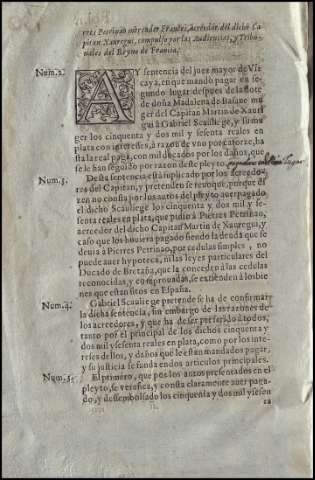 rres Petrinao mercader Frances, acreedor del dicho Ca
pitan Xauregui, compulso por las Audiencias, y Tribu
nales del Reyno de Francia.
Num.2. AY sentencia del juez mayor de Viz
caya, en que mando pagar en se-
gundo lugar despues de la dote
de doña Madalena de Basane mu
ger del Capitan Martin de Xaure
gui à Gabriel Scauliege, y su mu
ger los cinquenta y dos mil y sesenta reales en
plata con interesses, à razon de vno por catorze, ha
sta la real paga, con mil ducados por los daños, que
se le han seguido por razon deste pleyto,
Num.3. Desta sentencia està suplicado por los acreedo-
res del Capitan, y pretenden se revoque, porque di
zen no consta por los autos del pleyto auer pagado
el dicho Scauliege los cinquenta y dos mil y se-
senta reales en plata, que pidiò à Pierres Petrinao,
acreedor del dicho Capitan Martin de Xauregui, y
caso que los huuiera pagado siendo la deuda que se
deuia à Pierres Petrinao, por cedulas simples, no
puede auer hypoteca, ni las leyes particulares del
Ducado de Bretaña, que la conceden à las cedulas
reconocidas, y comprouadas, se estienden à los bie
nes que estàn sitos en España.
Num.4. Gabriel Scauliege pretende se ha de confirmar
la dicha sentencia, sin embargo de las razones de
los acreedores, y que ha de ser preferido à todos,
tanto por el principal de los dichos cinquenta y
dos mil y sesenta reales en plata, como por los inte-
resses dellos, y daños que le estan mandados pagar,
y su justicia se funda en dos articulos principales.
Num.5. El primero, que por los autos presentados en el
pleyto, se verifica, y consta claramente auer paga-
do, y desembolsado los cinquenta y dos mil y sesen
ta